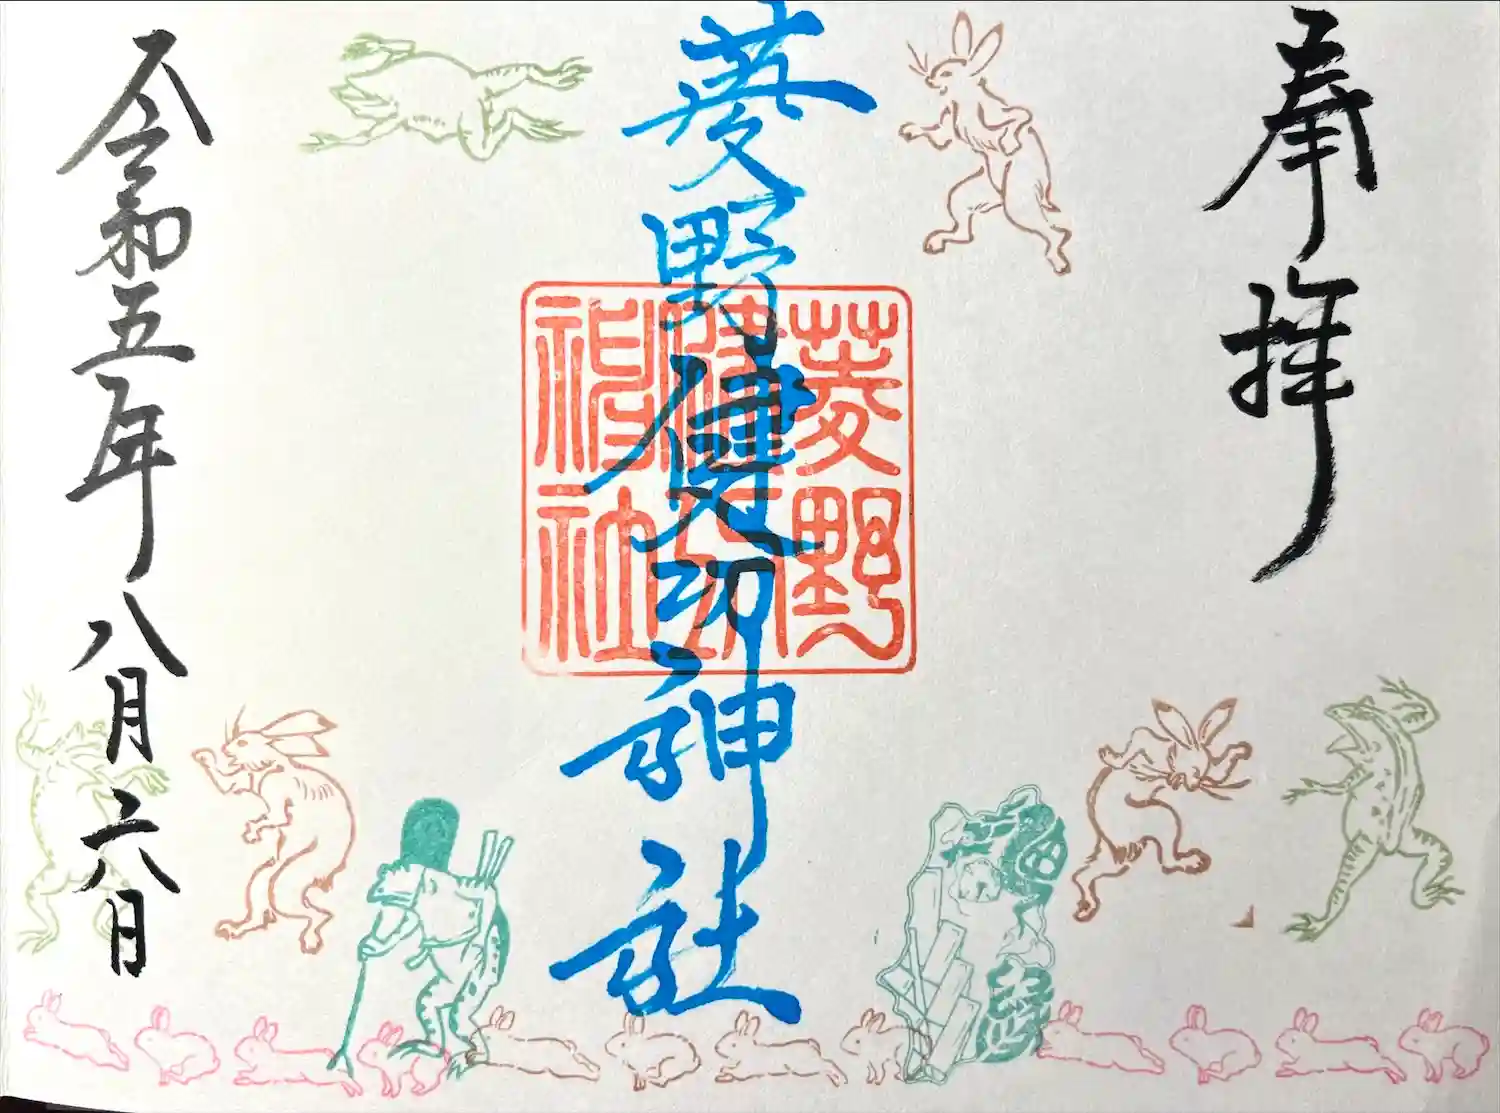 奉拝
菱野健功神社
菱野
健功
神社
令和五年八月六日